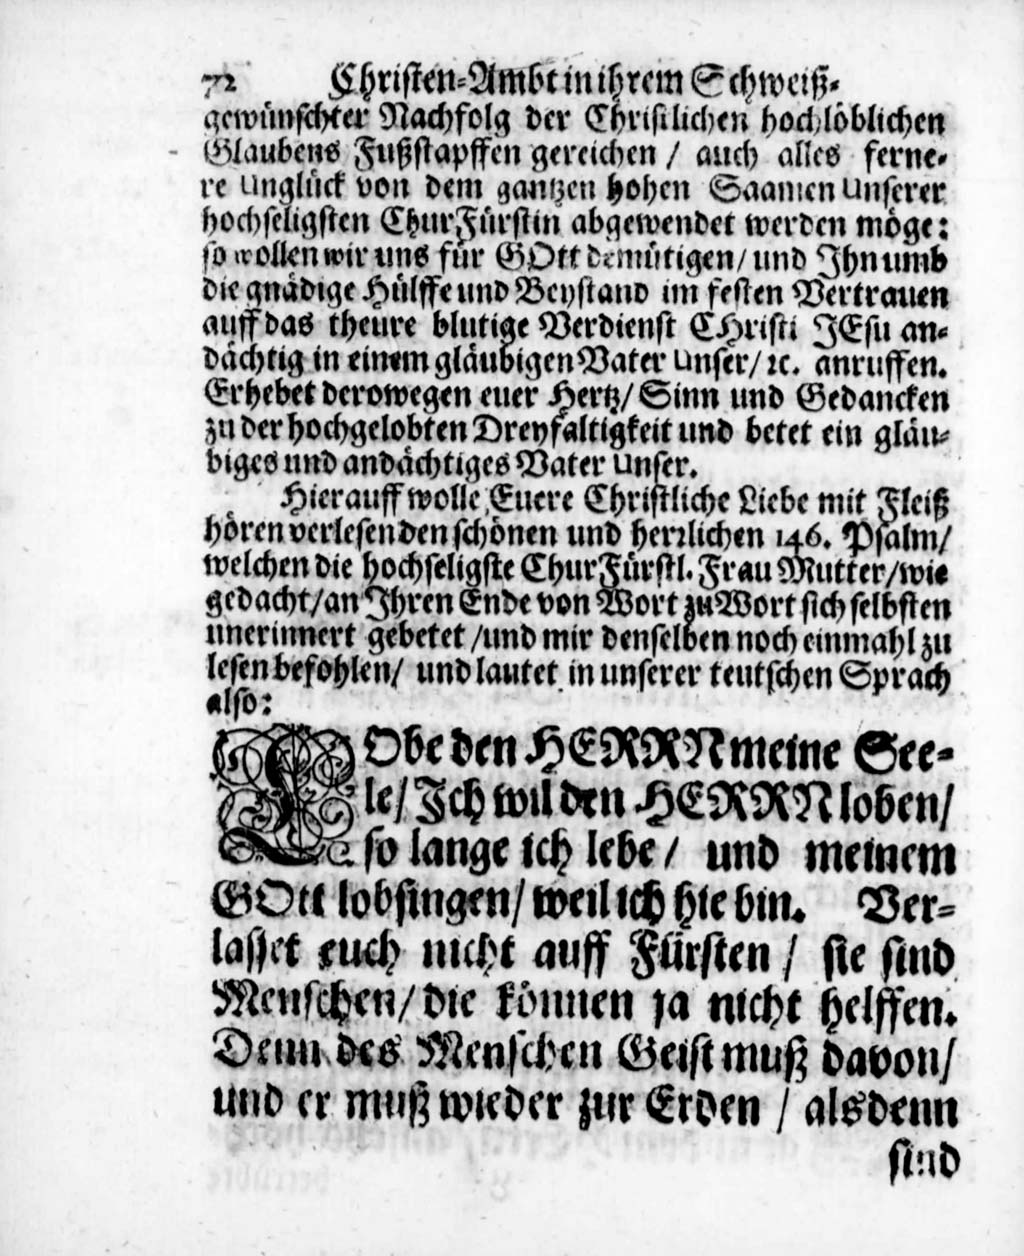 72 Christen-Ambt in ihrem Schweiß-
gewünschter Nachfolg der Christlichen hochlöblichen
Glaubens Fußstapffen gereichen / auch alles ferne-
re Unglück von dem gantzen hohen Saamen Unserer
hochseligsten ChurFürstin abgewendet werden möge:
so wollen wir uns für GOtt demütigen / und Ihn umb
die gnädige Hülffe und Beystand im festen Vertrauen
auff das theure blutige Verdienst CHristi JEsu an-
dächtig in einem gläubigen Vater Unser / ꝛc. anruffen.
Erhebet derowegen euer Hertz / Sinn und Gedancken
zu der hochgelobten Dreyfaltigkeit und betet ein gläu-
biges und andächtiges Vater Unser.
Hierauff wolle Euere Christliche Liebe mit Fleiß
hören verlesen den schönen und herꝛlichen 146. Psalm /
welchen die hochseligste ChurFürstl. Frau Mutter / wie
gedacht / an Ihren Ende von Wort zu Wort sich selbsten
unerinnert gebetet / und mir denselben noch einmahl zu
lesen befohlen / und lautet in unserer teutschen Sprach
also:
LObe den HERRN meine See-
le / Ich wil den HERRN loben /
so lange ich lebe / und meinem
GOtt lobsingen / weil ich hie bin. Ver-
lasset euch nicht auff Fürsten / sie sind
Menschen / die können ja nicht helffen.
Denn des Menschen Geist muß davon /
und er muß wieder zur Erden / alsdenn
sind